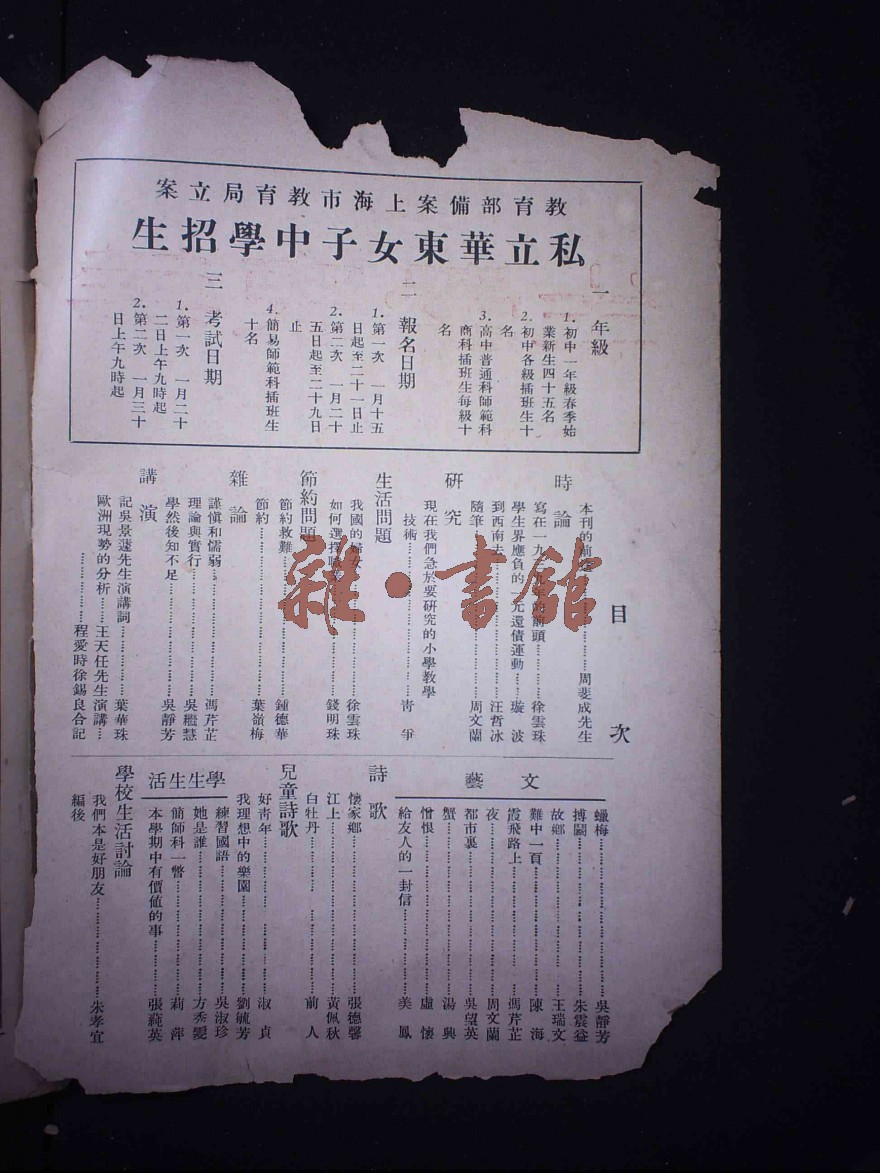 教育部備案上海市教育局立案
私立華東女子中學招生
一 年級
1.初中一年級春季始
業新生四十五名
2.初中各級插班生十
名
3.高中普通科師範科
商科插班生每級十
名
二 報名日期
1.第一次 一月十五
日起至二十一日止
2.第二次 一月二十
五日起至二十九日
止
4.簡易師範科插班生
十名
三 考試日期
1.第一次 一月二十
二日上午九時起
2.第二次 一月三十
日上午九時起
目次
本刊的前……周斐成先生
時論
寫在一九三九年的前頭……徐雲珠
學生界應負的一元還債運動……璇波
到西南去……汪哲冰
隨筆……周文蘭
研究
現在我們急於要研究的小學教學
技術……青爭
生活問題
我國的婦女……徐雲珠
如何選擇職業……錢明珠
節約問題
節約救難……鍾德華
節約……葉嶺梅
雜論
謹慎和懦弱……馮芹芷
理論與實行……吳繼慧
學然後知不足……吳靜芳
講演
記吳景蓬先生演講詞……葉華珠
歐洲現勢的分析……王天任先生演講……
程愛時徐錫良合記
文藝
蠟梅……吳靜芳
搏鬬……朱震益
故鄉……王瑞文
難中一頁……陳海
霞飛路上……馮芹芷
夜……周文蘭
都市裏……吳望英
蟹……湯興
憎恨……虛懷
給友人的一封信……美鳳
詩歌
懷家鄉……張德馨
江上……黃佩秋
白牡丹……前人
兒童詩歌
好青年……淑貞
我理想中的樂園……劉毓芳
學生生活
練習國語……吳淑珍
她是誰……方秀雯
簡師科一瞥……莉萍
本學期中有價値的事……張蒓英
學校生活討論
我們本是好朋友……朱孝宜
編後
雜·書館